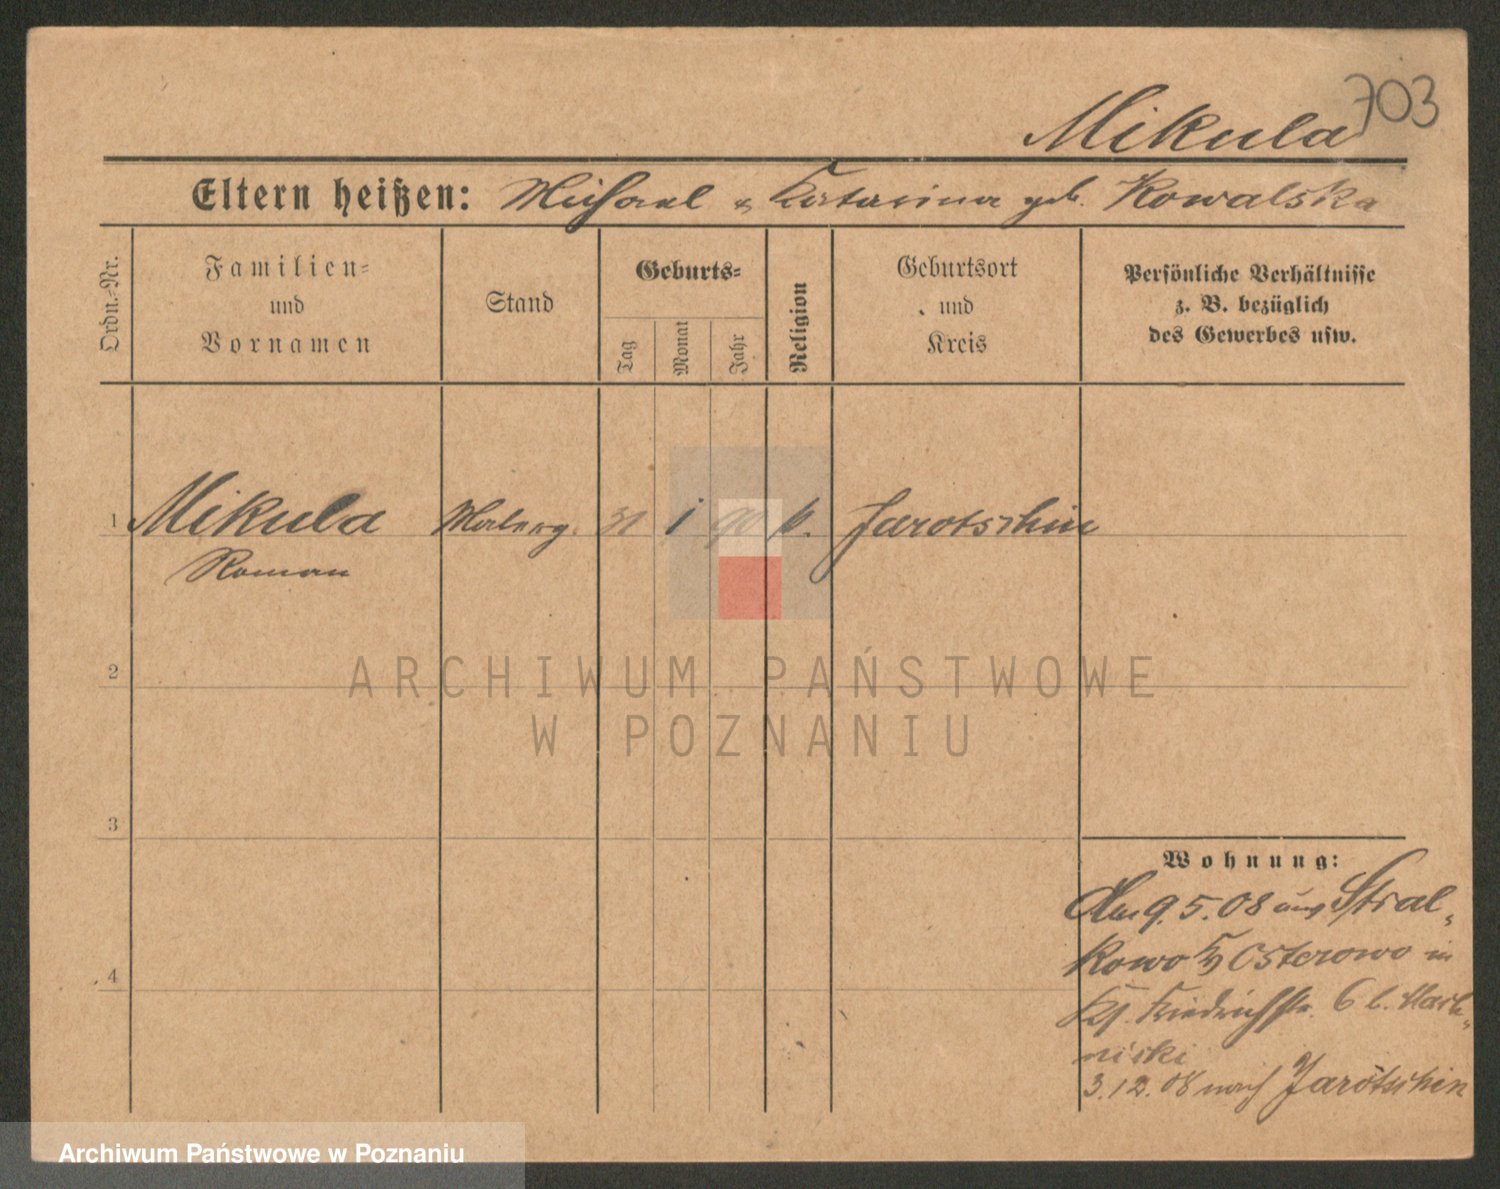 703
Mikula
Eltern heißen: Michael & Katarina geb. Kowalska
Ordn.-Nr.
Familien-
und
Vornamen
Stand
Geburts-
Tag
Monat
Jahr
Religion
Geburtsort
und
Kreis
Persönliche Verhältnisse
z. B. bezüglich
des Gewerbes usw.
1 Mikula 31 i 90 k. Jarotschin
Roman
2
3
4
ARCHIWUM PAŃSTWOWE
W POZNANIU
Wohnung:
Am 9.5.08 aus Stral-
kowo Osterowo in
Friedrichstr. 6 b.
niski
3.12.08 nach Jarotschin
Archiwum Państwowe w Poznaniu